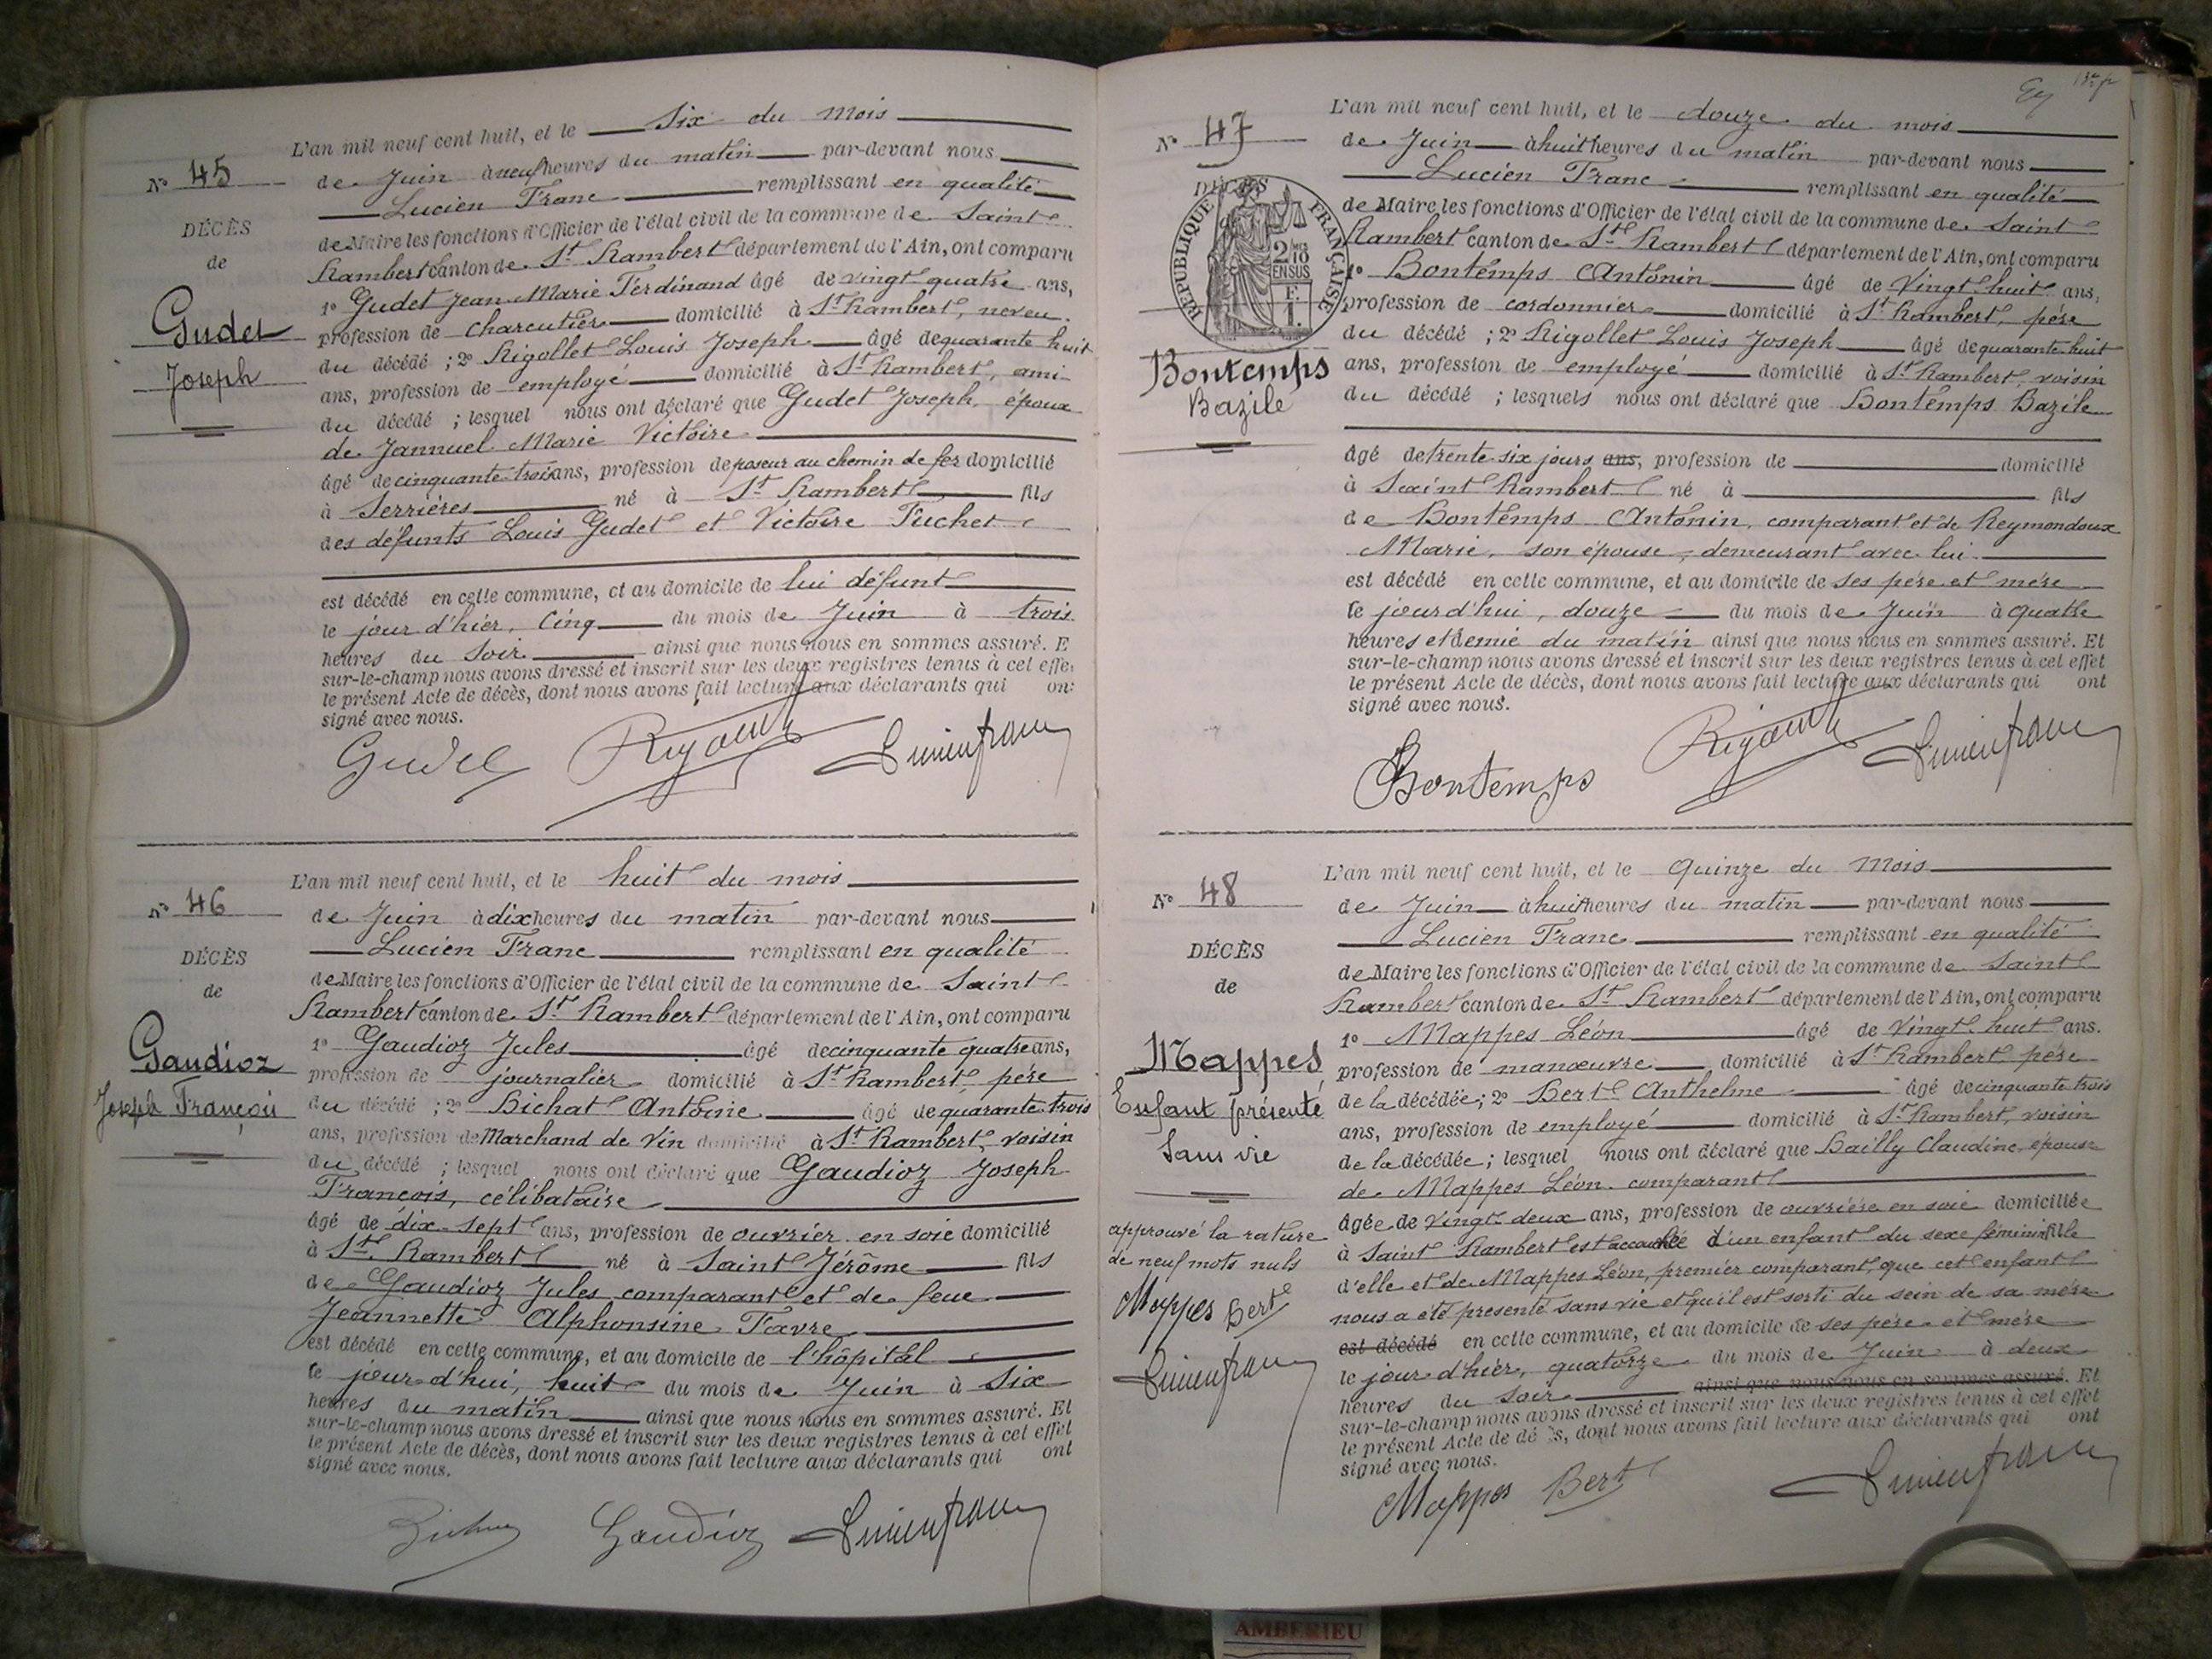 N° 45
DÉCÈS
de
Gudet
Joseph
L'an mil neuf cent huit, et le six du mois
de Juin à neuf heures du matin par-devant nous
Lucien Franc remplissant en qualité
de Maire les fonctions d'Officier de l'état civil de la commune de Saint
Rambert canton de St Rambert département de l'Ain, ont comparu
1° Gudet Jean Marie Ferdinand âgé de vingt quatre ans,
profession de charcutier domicilié à St Rambert, neveu
du décédé ; 2° Rigollet Louis Joseph âgé de quarante huit
ans, profession de employé domicilié à St Rambert, ami
du décédé ; lesquel nous ont déclaré que Gudet Joseph, époux
de Jannuel Marie Victoire
âgé de cinquante trois ans, profession de poseur au chemin de fer domicilié
à Serrières né à St Rambert fils
des défunts Louis Gudet et Victoire Tuchet
est décédé en cette commune, et au domicile de lui défunt
le jour d'hier, Cinq du mois de Juin à trois
heures du Soir ainsi que nous nous en sommes assuré. E
sur-le-champ nous avons dressé et inscrit sur les deux registres tenus à cet effe
le présent Acte de décès, dont nous avons fait lecture aux déclarants qui on
signé avec nous.
Gudet Lucien franc
N° 46
DÉCÈS
de
Gaudioz
Joseph François
L'an mil neuf cent huit, et le huit du mois
de Juin à dix heures du matin par-devant nous
Lucien Franc remplissant en qualité
de Maire les fonctions d'Officier de l'état civil de la commune de Saint
Rambert canton de St Rambert département de l'Ain, ont comparu
1° Gaudioz Jules âgé de cinquante quatre ans,
profession de journalier domicilié à St Rambert père
du décédé ; 2° Bichat Antoine âgé de quarante trois
ans, profession de Marchand de vin domicilié à St Rambert, voisin
du décédé ; lesquel nous ont déclaré que Gaudioz Joseph
François, célibataire
âgé de dix-sept ans, profession de ouvrier en soie domicilié
à St Rambert né à Saint Jérôme fils
de Gaudioz Jules comparant et de feue
Jeannette Alphonsine Favre
est décédé en cette commune, et au domicile de l'hôpital
le jour d'hui, huit du mois de Juin à Six
heures du matin ainsi que nous nous en sommes assuré. Et
sur-le-champ nous avons dressé et inscrit sur les deux registres tenus à cet effet
le présent Acte de décès, dont nous avons fait lecture aux déclarants qui ont
signé avec nous.
Gaudioz Lucien franc
N° 47
DÉCÈS
RÉPUBLIQUE FRANÇAISE
2/10
EN SUS
Bontemps
Bazile
L'an mil neuf cent huit, et le douze du mois
de Juin à huit heures du matin par-devant nous
Lucien Franc remplissant en qualité
de Maire les fonctions d'Officier de l'état civil de la commune de Saint
Rambert canton de St Rambert département de l'Ain, ont comparu
1° Bontemps Antonin âgé de Vingt huit ans,
profession de cordonnier domicilié à St Rambert, père
du décédé ; 2° Rigollet Louis Joseph âgé de quarante huit
ans, profession de employé domicilié à St Rambert, voisin
du décédé ; lesquels nous ont déclaré que Bontemps Bazile
âgé de trente six jours ans, profession de domicilié
à Saint Rambert né à fils
de Bontemps Antonin, comparant et de Reymondoux
Marie, son épouse, demeurant avec lui
est décédé en cette commune, et au domicile de ses père et mère
le jour d'hui, douze du mois de Juin à quatre
heures et demie du matin ainsi que nous nous en sommes assuré. Et
sur-le-champ nous avons dressé et inscrit sur les deux registres tenus à cet effet
le présent Acte de décès, dont nous avons fait lecture aux déclarants qui ont
signé avec nous.
Bontemps Lucien franc
N° 48
DÉCÈS
de
Mappes
Enfant présenté
Sans vie
approuvé la rature
de neuf mots nuls
Mappes Bert
Lucien franc
L'an mil neuf cent huit, et le quinze du Mois
de Juin à huit heures du matin par-devant nous
Lucien Franc remplissant en qualité
de Maire les fonctions d'Officier de l'état civil de la commune de Saint
Rambert canton de St Rambert département de l'Ain, ont comparu
1° Mappes Léon âgé de Vingt huit ans.
profession de manœuvre domicilié à St Rambert père
de la décédée ; 2° Bert Anthelme âgé de cinquante trois
ans, profession de employé domicilié à St Rambert, voisin
de la décédée ; lesquel nous ont déclaré que Bailly Claudine épouse
de Mappes Léon comparant
âgée de vingt deux ans, profession de ouvrière en soie domiciliée
à Saint Rambert est accouchée d'un enfant du sexe féminin fille
d'elle et de Mappes Léon, premier comparant, que cet enfant
nous a été présenté sans vie et qu'il est sorti du sein de sa mère
est décédé en cette commune, et au domicile de ses père et mère
le jour d'hier, quatorze du mois de Juin à deux
heures du Soir ainsi que nous nous en sommes assuré. Et
sur-le-champ nous avons dressé et inscrit sur les deux registres tenus à cet effet
le présent Acte de décès, dont nous avons fait lecture aux déclarants qui ont
signé avec nous.
Mappes Bert Lucien franc
AMBERIEU